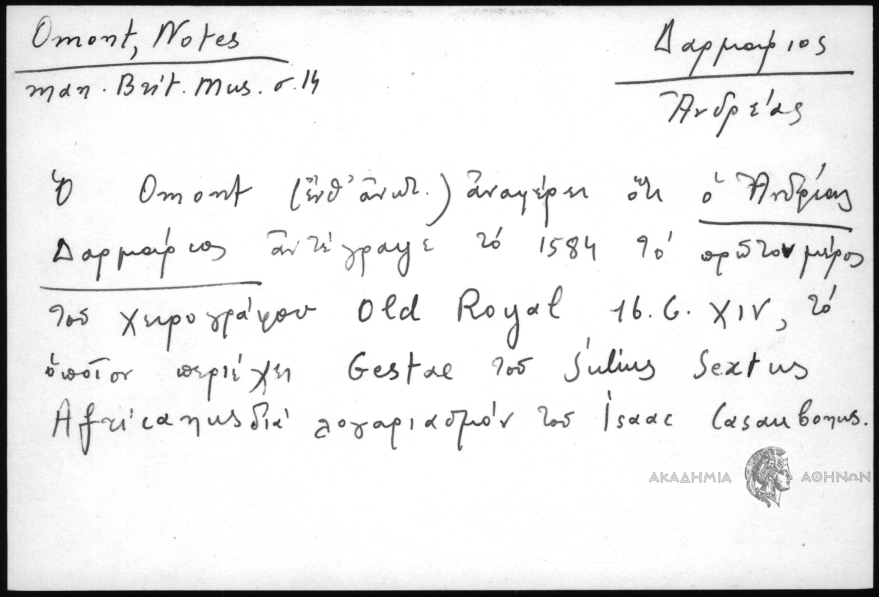 Omont, Notes
man. Brit. Mus. σ. 14
Δαρμάριος
Ἀνδρέας
Ὁ Omont (ἔνθ' ἀνωτ.) ἀναφέρει ὅτι ὁ Ἀνδρέας
Δαρμάριος ἀντέγραψε τὸ 1584 τὸ πρῶτον μέρος
τοῦ χειρογράφου Old Royal 16. G. XIV, τὸ
ὁποῖον περιέχει Gestae τοῦ Julius Sextus
Africanus διὰ λογαριασμόν τοῦ Isaac Casaubonus.
ΑΚΑΔΗΜΙΑ ΑΘΗΝΩΝ